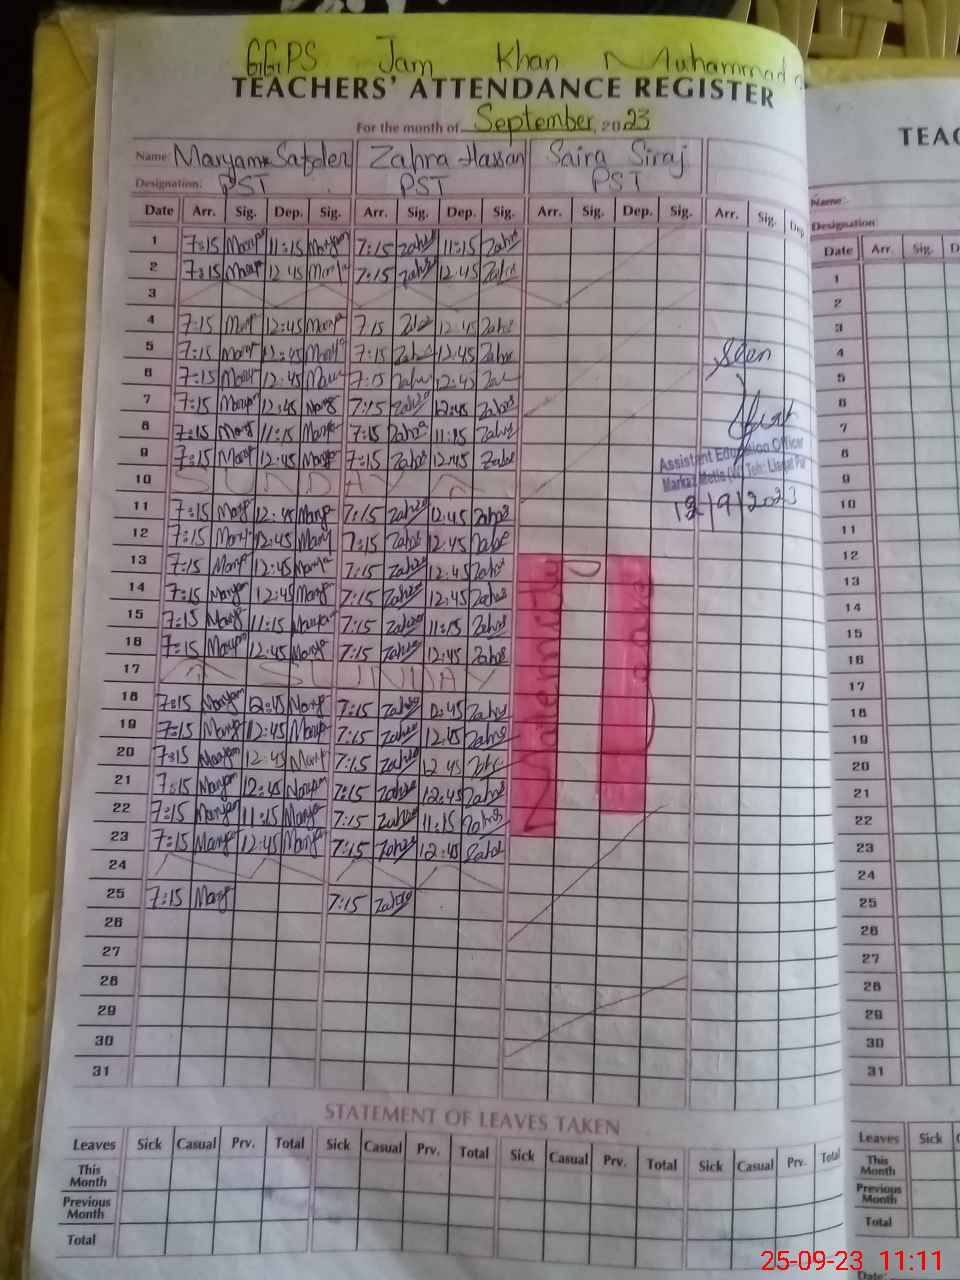 GGPS Jam Khan Muhammad
TEACHERS' ATTENDANCE REGISTER
For the month of September 2023
Name: Maryam Safder Zahra Hassan Saira Siraj
Designation: PST PST PST
Date Arr. Sig. Dep. Sig. Arr. Sig. Dep. Sig. Arr. Sig. Dep. Sig. Arr. Sig. Dep
1 7:15 Maryam 11:15 Maryam 7:15 Zahra 11:15 Zahra
2 7:15 Marya 12:45 Marya 7:15 Zahra 12:45 Zahra
3
4 7:15 12:45 Marya 7:15 12:45 Zahra
5 7:15 Marya 12:45 Marya 7:15 Zahra 12:45 Zahra
Seen
6 7:15 12:45 7:15 Zahra 12:45
7 7:15 Maryam 12:45 7:15 Zahra 12:45 Zahra
8 7:15 11:15 Marya 7:15 Zahra 11:15 Zahra
9 7:15 Marya 12:45 Marya 7:15 Zahra 12:45 Zahra
Assistant Education Officer
10 SUNDAY
12/9/2023
11 7:15 Marya 12:45 Marya 7:15 Zahra 12:45 Zahra
12 7:15 Mary 12:45 Mary 7:15 Zahra 12:45 Zahra
13 7:15 Marya 12:45 Marya 7:15 Zahra 12:45 Zahra
14 7:15 Maryam 12:45 Marya 7:15 Zahra 12:45 Zahra
15 7:15 Maryam 11:15 Maryam 7:15 Zahra 11:15 Zahra
16 7:15 Maryam 12:45 Marya 7:15 Zahra 12:45 Zahra
17 SUNDAY
18 7:15 Maryam 12:45 Marya 7:15 Zahra 12:45 Zahra
19 7:15 Marya 12:45 Marya 7:15 Zahra 12:45 Zahra
20 7:15 Maryam 12:45 Marya 7:15 Zahra 12:45
21 7:15 Maryam 12:45 Maryam 7:15 Zahra 12:45 Zahra
22 7:15 Maryam 11:15 Marya 7:15 Zahra 11:15 Zahra
23 7:15 Marya 12:45 Marya 7:15 Zahra 12:45 Zahra
24
25 7:15 Mary 7:15 Zahra
26
27
28
29
30
31
STATEMENT OF LEAVES TAKEN
Leaves Sick Casual Prv. Total Sick Casual Prv. Total Sick Casual Prv. Total Sick Casual Prv. Total
This Month
Previous Month
Total
TEAC
Name:
Designation
Date Arr. Sig. D
1
2
3
4
5
6
7
8
9
10
11
12
13
14
15
16
17
18
19
20
21
22
23
24
25
26
27
28
29
30
31
Leaves Sick C
This Month
Previous Month
Total
Date:
25-09-23 11:11